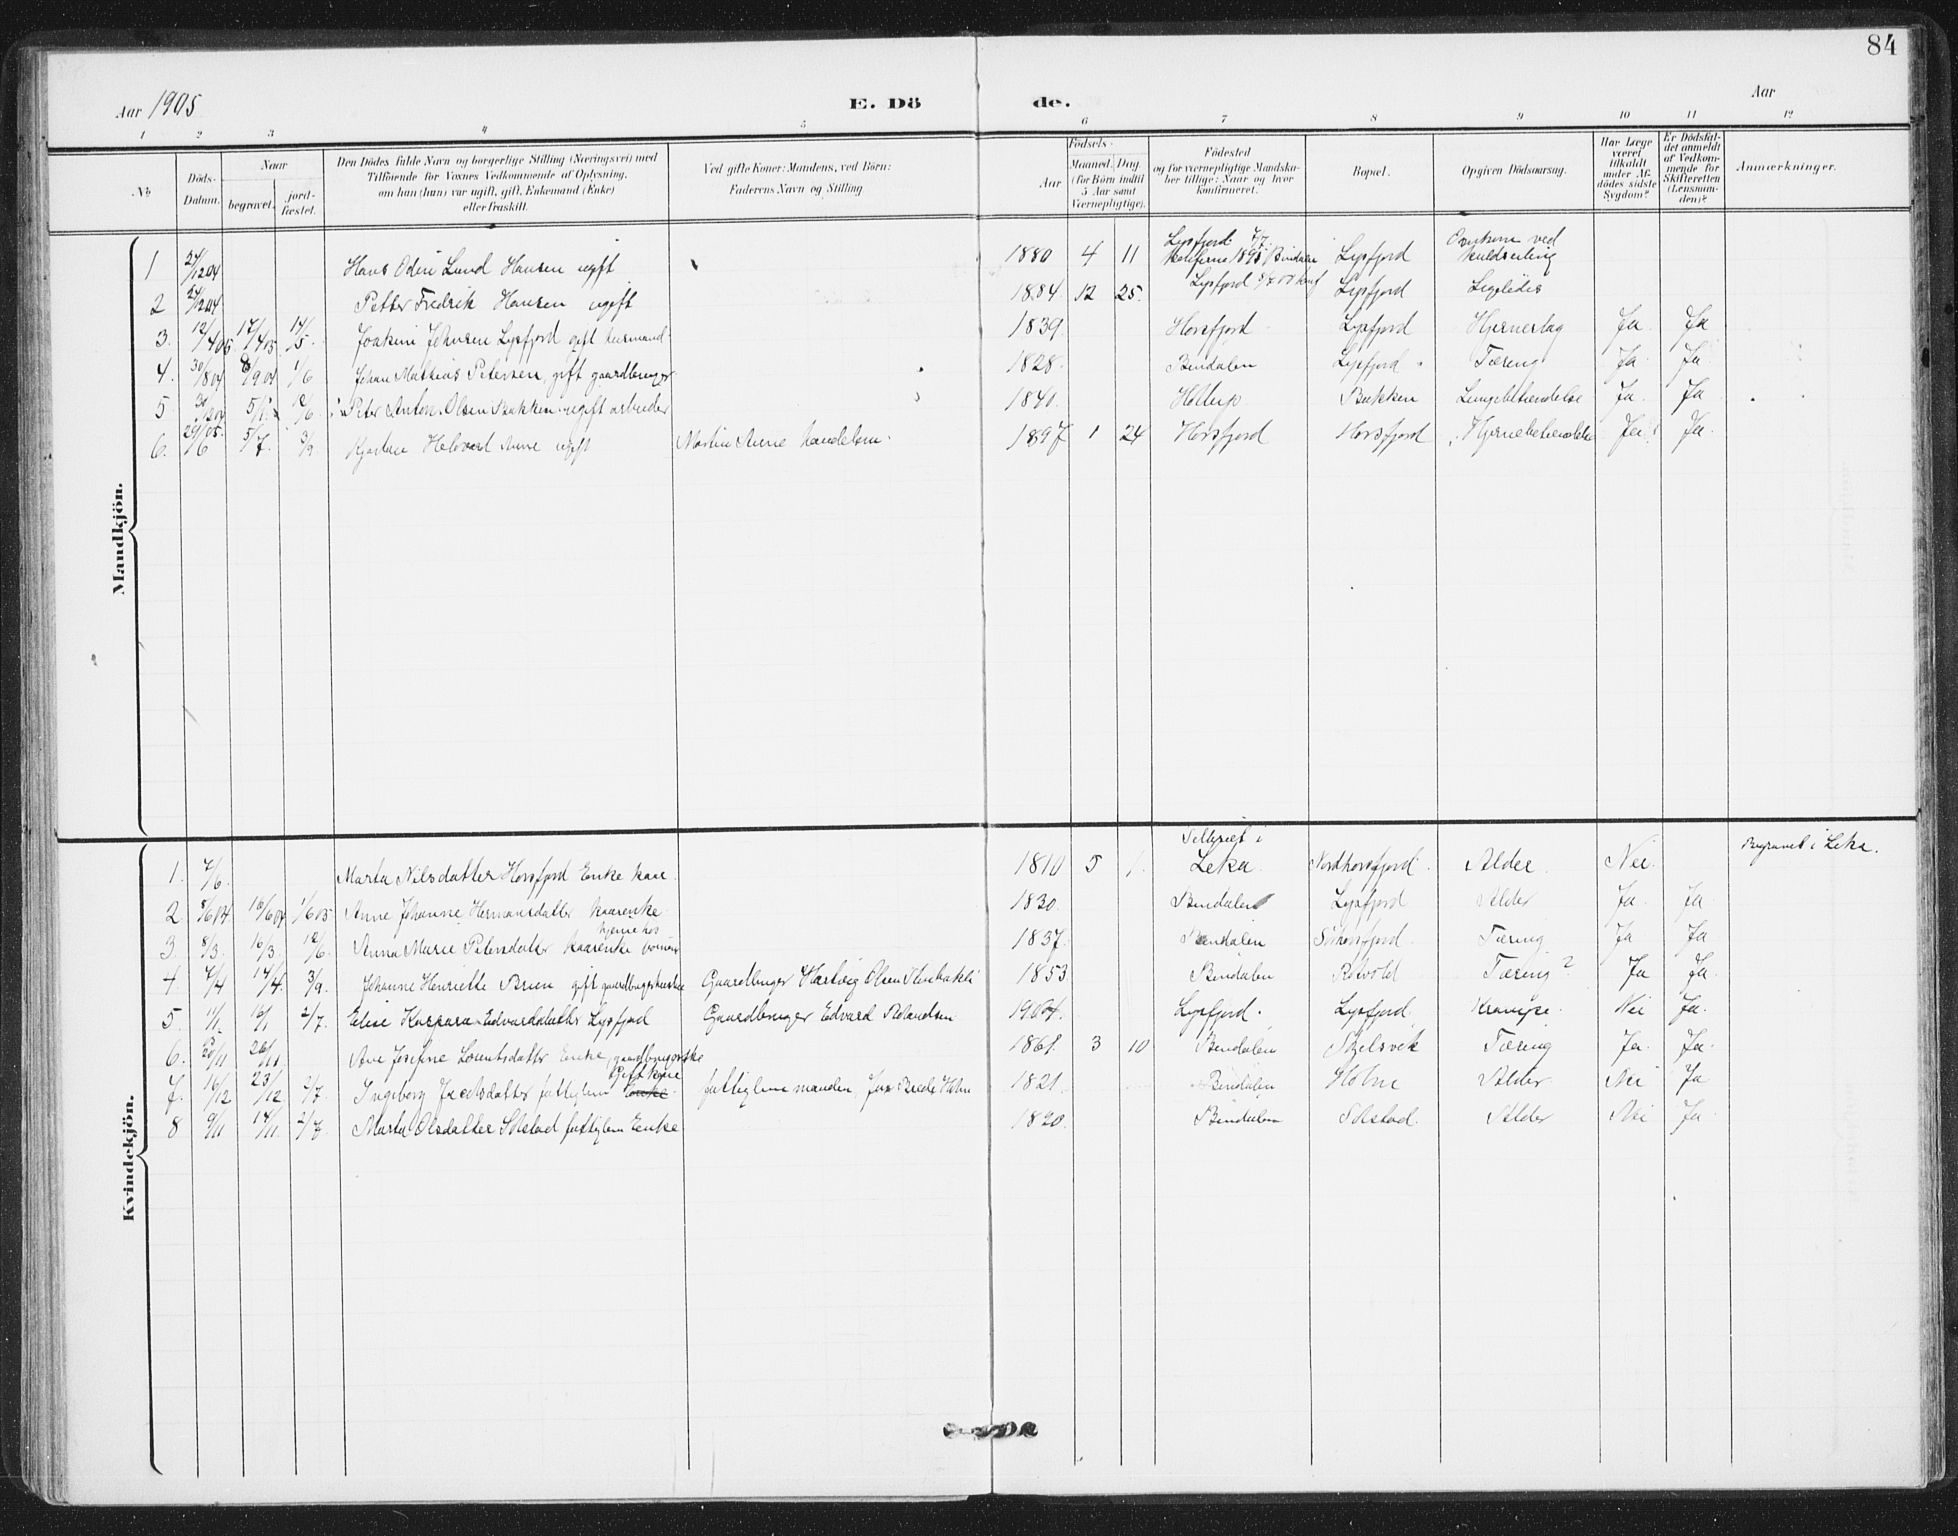 84
Aar 1905 E. Dö de. Aar
1 2 3 4 5 6 7 8 9 10 11 12
№ Döds-Datum. Naar begravet. jordfæstet. Den Dödes fulde Navn og borgerlige Stilling (Næringsvei) med Tilföiende for Voxnes Vedkommende af Oplysning, om han (hun) var ugift, gift, Enkemand (Enke) eller fraskilt. Ved gifte Koner: Mandens, ved Börn: Faderens Navn og Stilling Födsels- Aar Maaned. Dag. (for Börn indtil 5 Aar samt Værnepligtige). Födested og for værnepligtige Mandskaber tillige: Naar og hvor konfirmeret. Bopæl. Opgiven Dödsaarsag. Har Læge været tilkaldt under Afdödes sidste Sygdom? Er Dödsfaldet anmeldt af Vedkommende for Skifteretten (Lensmanden)? Anmærkninger.
Mandkjön.
1 24/12 04 Hans Odin Lund Hansen ugift 1880 4 11 Lysfjord 1895 Bindalen Lysfjord Omkom ved kuldseiling
2 24/12 04 Petter Fredrik Hansen ugift 1884 12 25. Lysfjord Lysfjord Ligeledes
3. 12/4 05 17/4 05 14/5 Joakim Johnsen Lysfjord gift husmand 1839. Horsfjord Lysfjord Hjerneslag Ja Ja
4. 30/8 04 8/9 04 1/6 Johan Mathias Petersen, gift gaardbruger 1828. Bindalen Lysfjord Tæring Ja Ja
5. 5/1 12/6 Peter Anton Olsen Bakken ugift arbeider 1840. Bakken Lungebetændelse Ja. Ja
6. 29/6 05. 5/7. 3/9 Helvard Anne ugift Martin Anne handelsm. 1897 1 24 Horsfjord Horsfjord Hjernebetændelse Ja Ja.
Kvindekjön.
1. 4/6. Marta Nilsdatter Horsfjord Enke kaar 1810 5 1. Leka Nordhorsfjord. Alder. Nei. Begravet i Leka.
2 8/6 04 16/6 04 1/6 05 Anne Johanne Hermansdatter kaarenke 1830. Bindalen Lysfjord Alder Ja. Ja.
3. 8/3. 16/3. 12/6. Anna Marie Petersdatter kaarenke hjemme hos 1837. Bindalen Sörhorsfjord. Tæring Ja Ja.
4 4/4 14/4. 3/9. Johanne Henriette Brun gift gaardbrugerkone Gaardbruger Hartvig Olsen 1853 Bindalen Tæring? Ja Ja.
5. 11/1. 16/1 2/7. Elise Kaspara Edvardsdatter Lysfjord Gaardbruger Edvard Rolandsen 1904. Lysfjord. Lysfjord. Krampe. Nei Ja.
6. 20/11 26/11. Ane Josefine Lorentsdatter Enke, gaardbrugerske 1861. 3 10 Bindalen Tæring Ja. Ja.
7. 16/12 23/12 2/7. Ingeborg Jacobsdatter fattiglem Gift kone Enke. fattiglem manden, 1821. Bindalen Holm Alder Nei Ja
8 9/11 14/11. 2/7 Marta Olsdatter Solstad fattiglem Enke 1820. Bindalen Solstad. Alder Nei Ja.